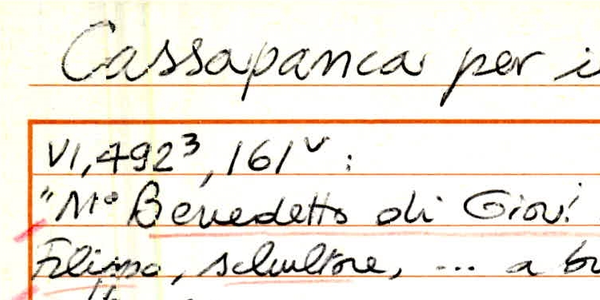 Cassapanca per i
VI, 492³, 161ᵛ :
"Mº Benedetto di Giovi
Filippo, scultore, ... a bu